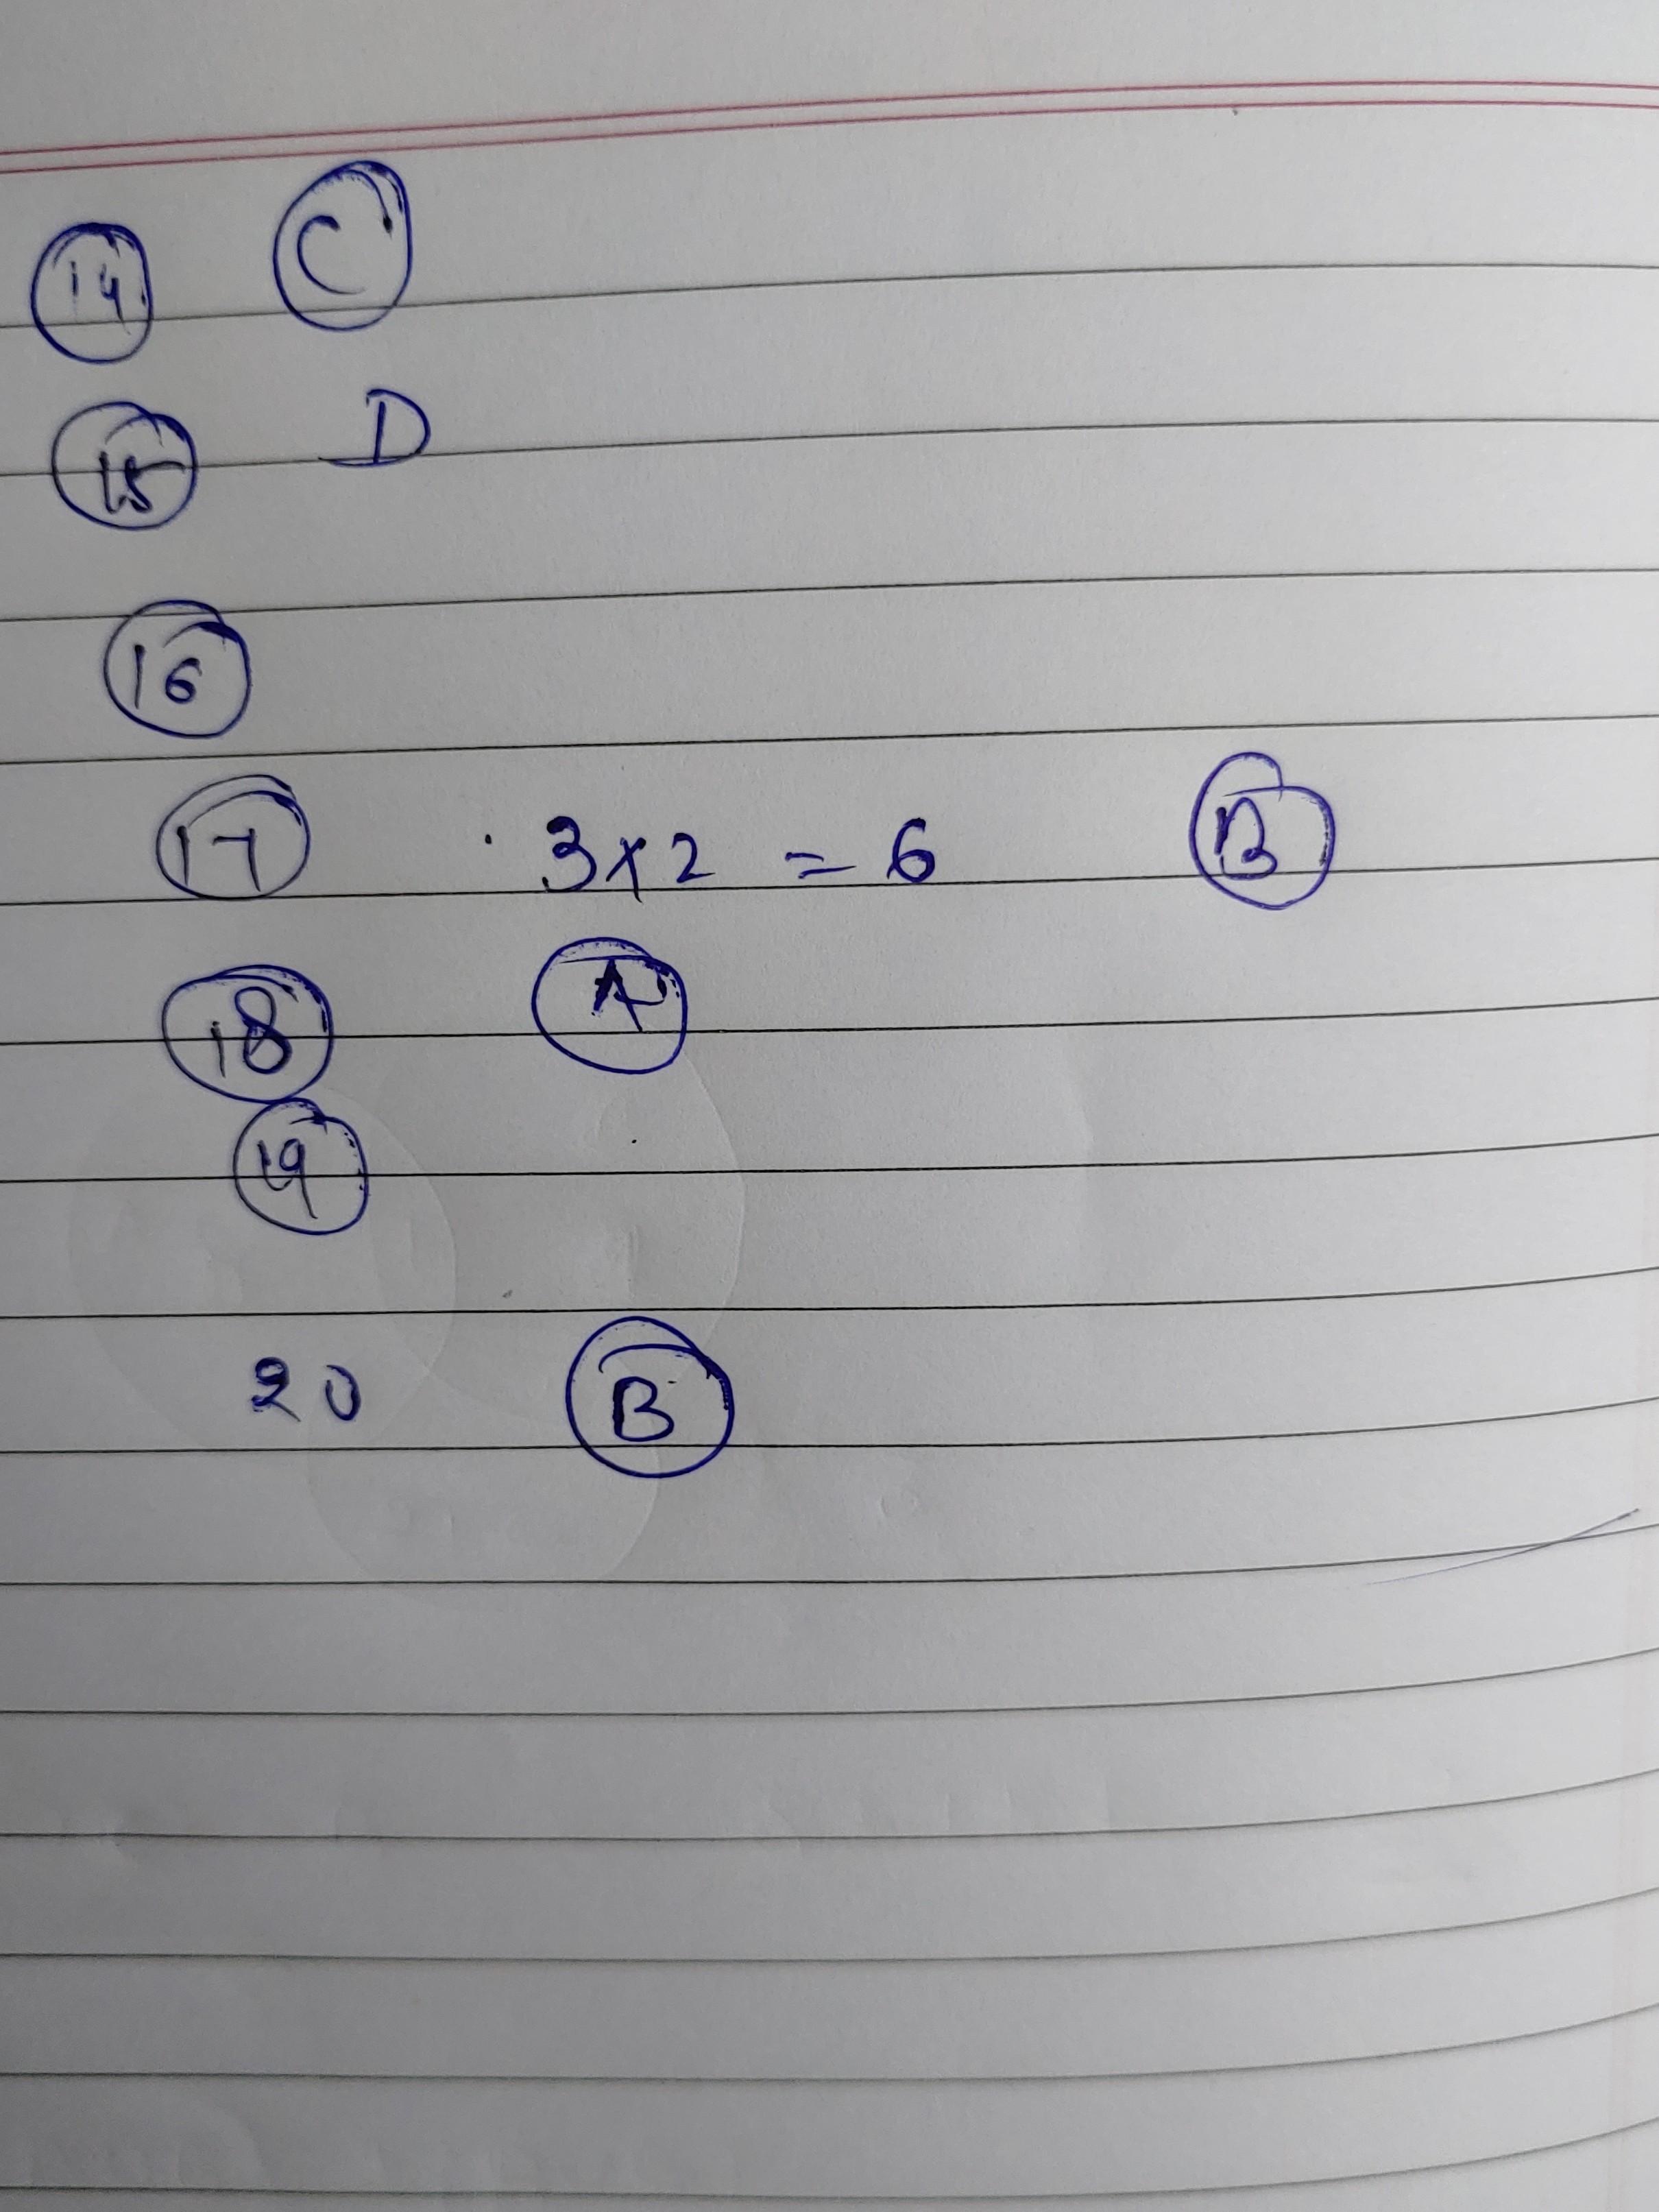 14 C
15 D
16
17 3x2 = 6 B
18 A
19
20 B